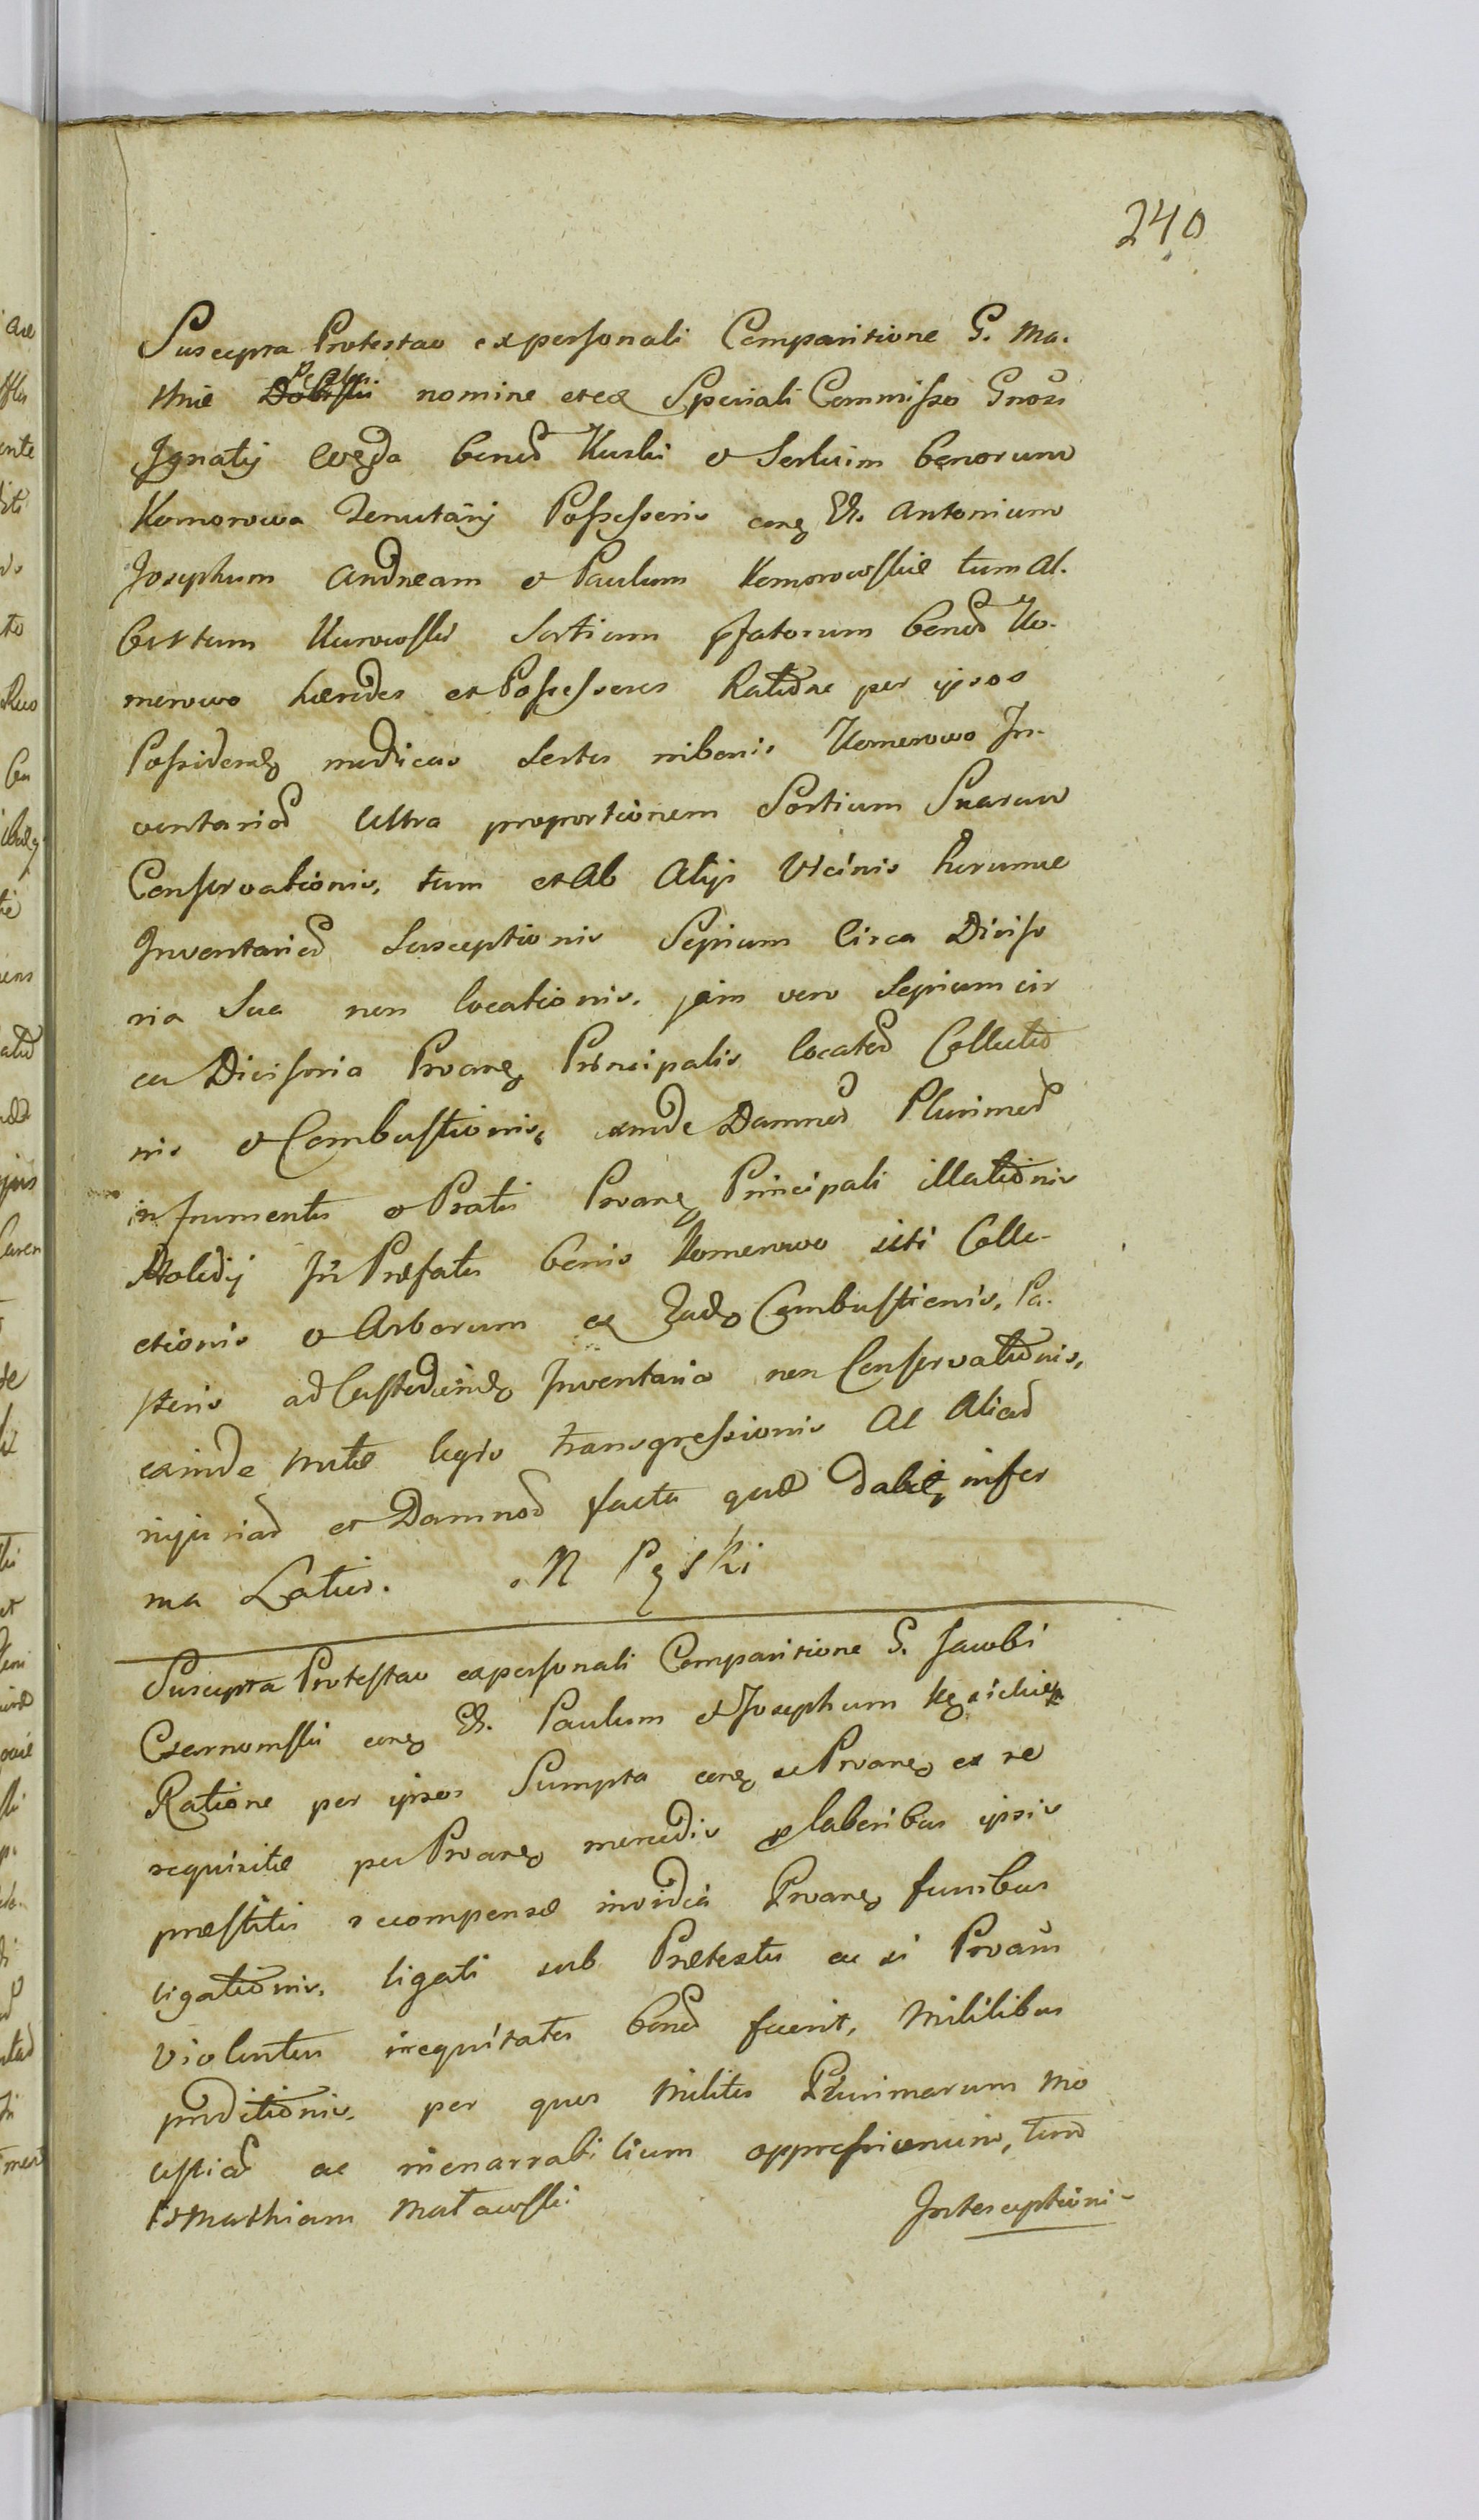 240
Suscepta Protestao ex personali Comparitione G. Ma-
thiæ nomine et ex Speciali Commisso Gnosi
Ignatij benoru Kuski et Sortium bonorum
Komorowa Tenutarij Possessoris conq Gh. Antonium
Josephum Andream et Paulum Komorowskie tum Al-
bertum Kurowski Sortium pfatorum bonoru Ko-
morowo hæredes et Possessores Ratione per ipsos
Possidenq modicas Sortes in bonis Komorowo In-
ventarioru Ultra proportionem Sortium Suarum
Conservationis, tum et ab Alijs Vicinis horumce
Inventarioru Susceptionis Sepium Circa Diviso
ria Sua non locationis, jam vero Sepium cir
ca Divisoria Proanq Principalis locataru Collectio
nis et Combustionis, exinde Damnoru Plurimoru
in frumentis et Pratis Proanq Principali illationis
in Præfatis bonis Komorowo siti Colle-
ctionis et Arborum ex Combustionis, Pa-
storis ad Custodienda Inventaria non Conservationis,
exinde legis transgressionis Ac Aliaru
injuriaru et Damnoru facta quæ infor
ma Latius. M Pęski
Suscepta Protestao ex personali Comparitione G. Jacobi
Czarnomski conq Gh. Paulum et Josephum
Ratione per ipsos Sumpta conq se Proanq ex re
requisitæ per Proanq mercedis p laboribus ipsis
præstitis recompensæ invidia Proanq funibus
ligationis, ligati sub Prætextu ac si Proans
violentus inequitator bonoru fuerit, Militibus
proditionis, per quos Milites Plurimarum mo
lestiaru ac inenarrabilium oppressionum, tum
et Mathiam Matawski
Interceptionis